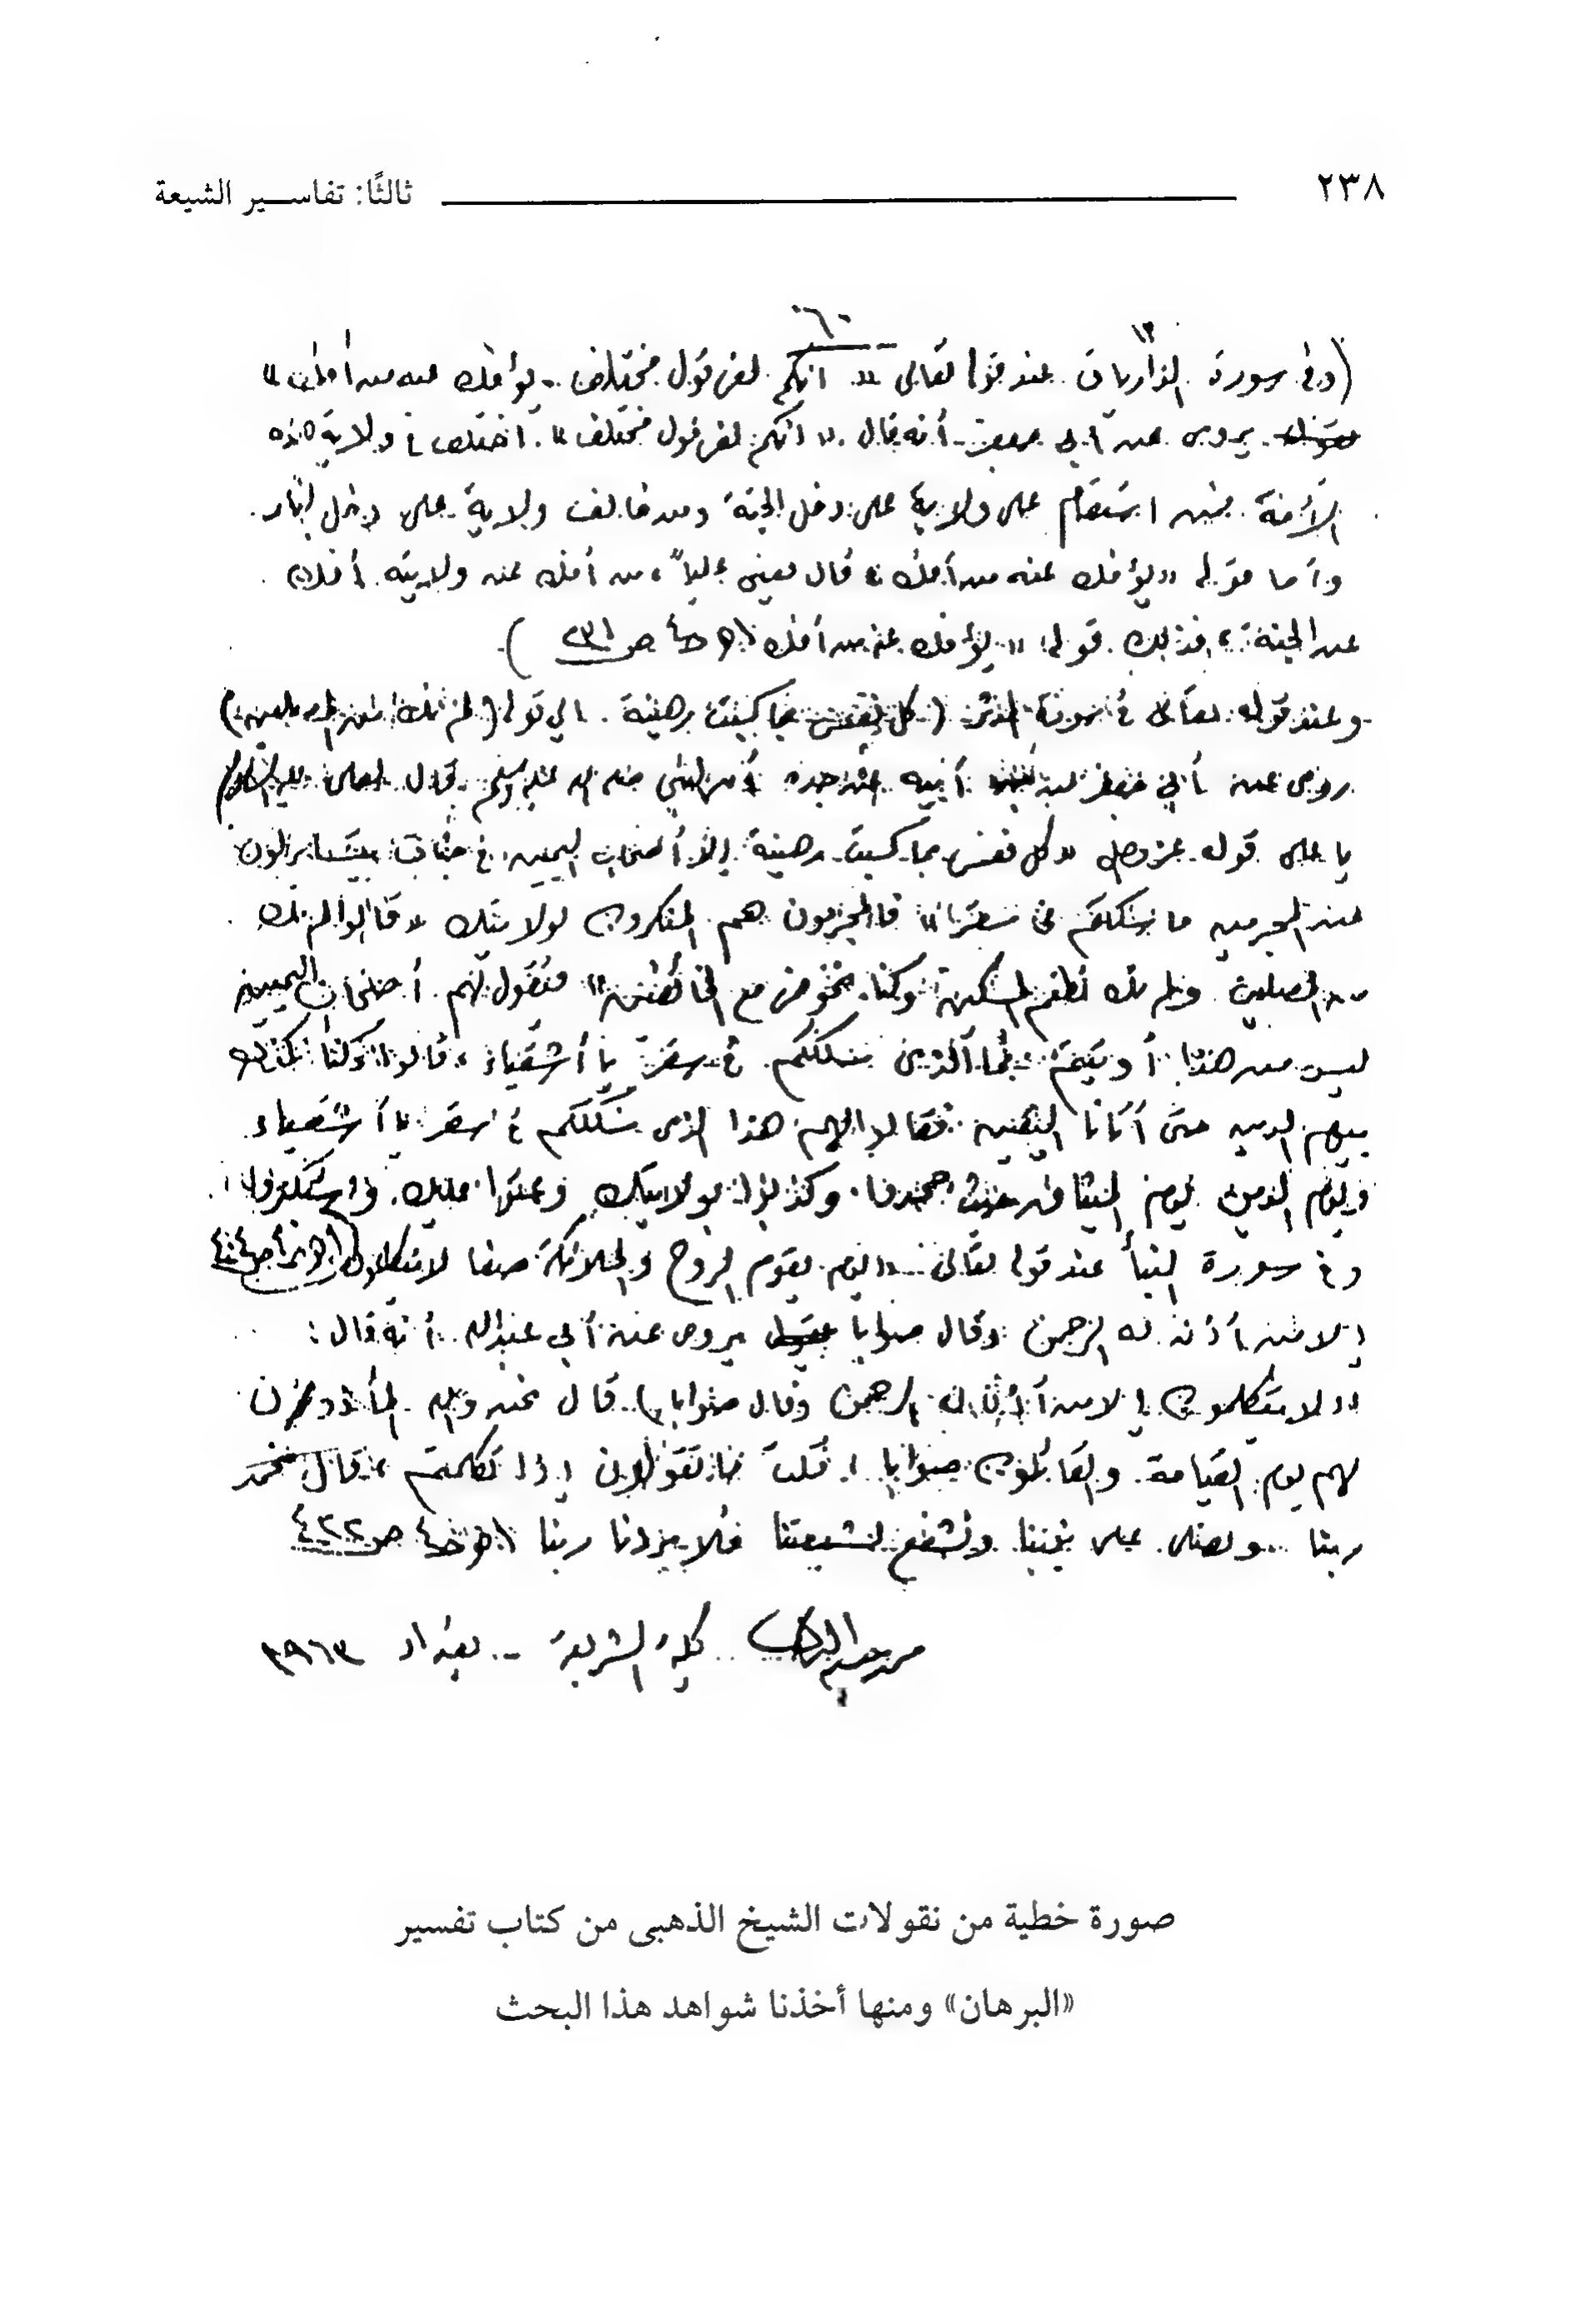 ٢٣٨ ثالثًا: تفاسير الشيعة
٦٠
(وفى سورة الذاريات عند قوله تعالى «انكم لفى قول مختلف. يؤفك عنه من أفك»
يروى عن أبى جعفر أنه قال «انكم لفى قول مختلف». اختلف فى ولاية هذه
الأمة فمن استقام على ولاية على دخل الجنة ومن خالف ولاية على دخل النار.
وأما قوله «يؤفك عنه من أفك» قال يعنى علياً، من أفك عن ولايته أفك
عن الجنة، فذلك قوله «يؤفك عنه من أفك» ج٤ ص ٢٣١)
وعند قوله تعالى فى سورة المدثر (كل نفس بما كسبت رهينة. الى قوله (لم نك من المصلين)
روى عن أبى جعفر عن أبيه عن جده أن النبي صلى الله عليه وسلم قال لعلى عليه السلام
يا على قوله عز وجل «كل نفس بما كسبت رهينة إلا أصحاب اليمين فى جنات يتساءلون
عن المجرمين ما سلككم فى سقر» فالمجرمون هم المنكرون لولايتك «قالوا لم نك
من المصلين ولم نك نطعم المسكين وكنا نخوض مع الخائضين» فيقول لهم أصحاب اليمين
ليس من هذا أوتيتم فما الذى سلككم فى سقر يا أشقياء، قالوا وكنا نكذب
بيوم الدين حتى أتانا اليقين فقالوا لهم هذا الذى سلككم فى سقر يا أشقياء
ويوم الدين يوم الميثاق حيث جحدوا وكذبوا بولايتك وعتوا عليك واستكبروا
وفى سورة النبأ عند قوله تعالى «يوم يقوم الروح والملائكة صفا لا يتكلمون
إلا من أذن له الرحمن وقال صوابا يروى عن أبى عبدالله أنه قال:
«لا يتكلمون إلا من أذن له الرحمن وقال صوابا» قال نحن والله المأذون
لهم يوم القيامة والقائلون صوابا. قلت ما تقولون إذا تكلمتم، قال نحمد
ربنا ونصلى على نبينا ونشفع لشيعتنا فلا يردنا ربنا ج٤ ص ٤٢٢
كلية الشريعة - بغداد ١٩٦٣
صورة خطية من نقولات الشيخ الذهبى من كتاب تفسير
«البرهان» ومنها أخذنا شواهد هذا البحث